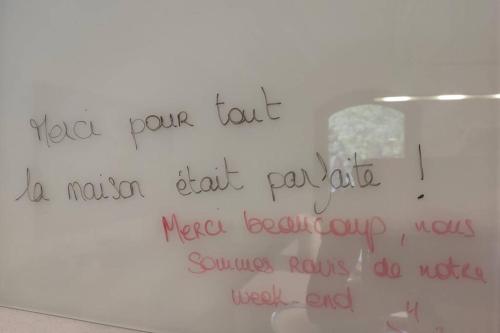 Merci pour tout
la maison était parfaite !
Merci beaucoup, nous
sommes ravis de notre
week-end